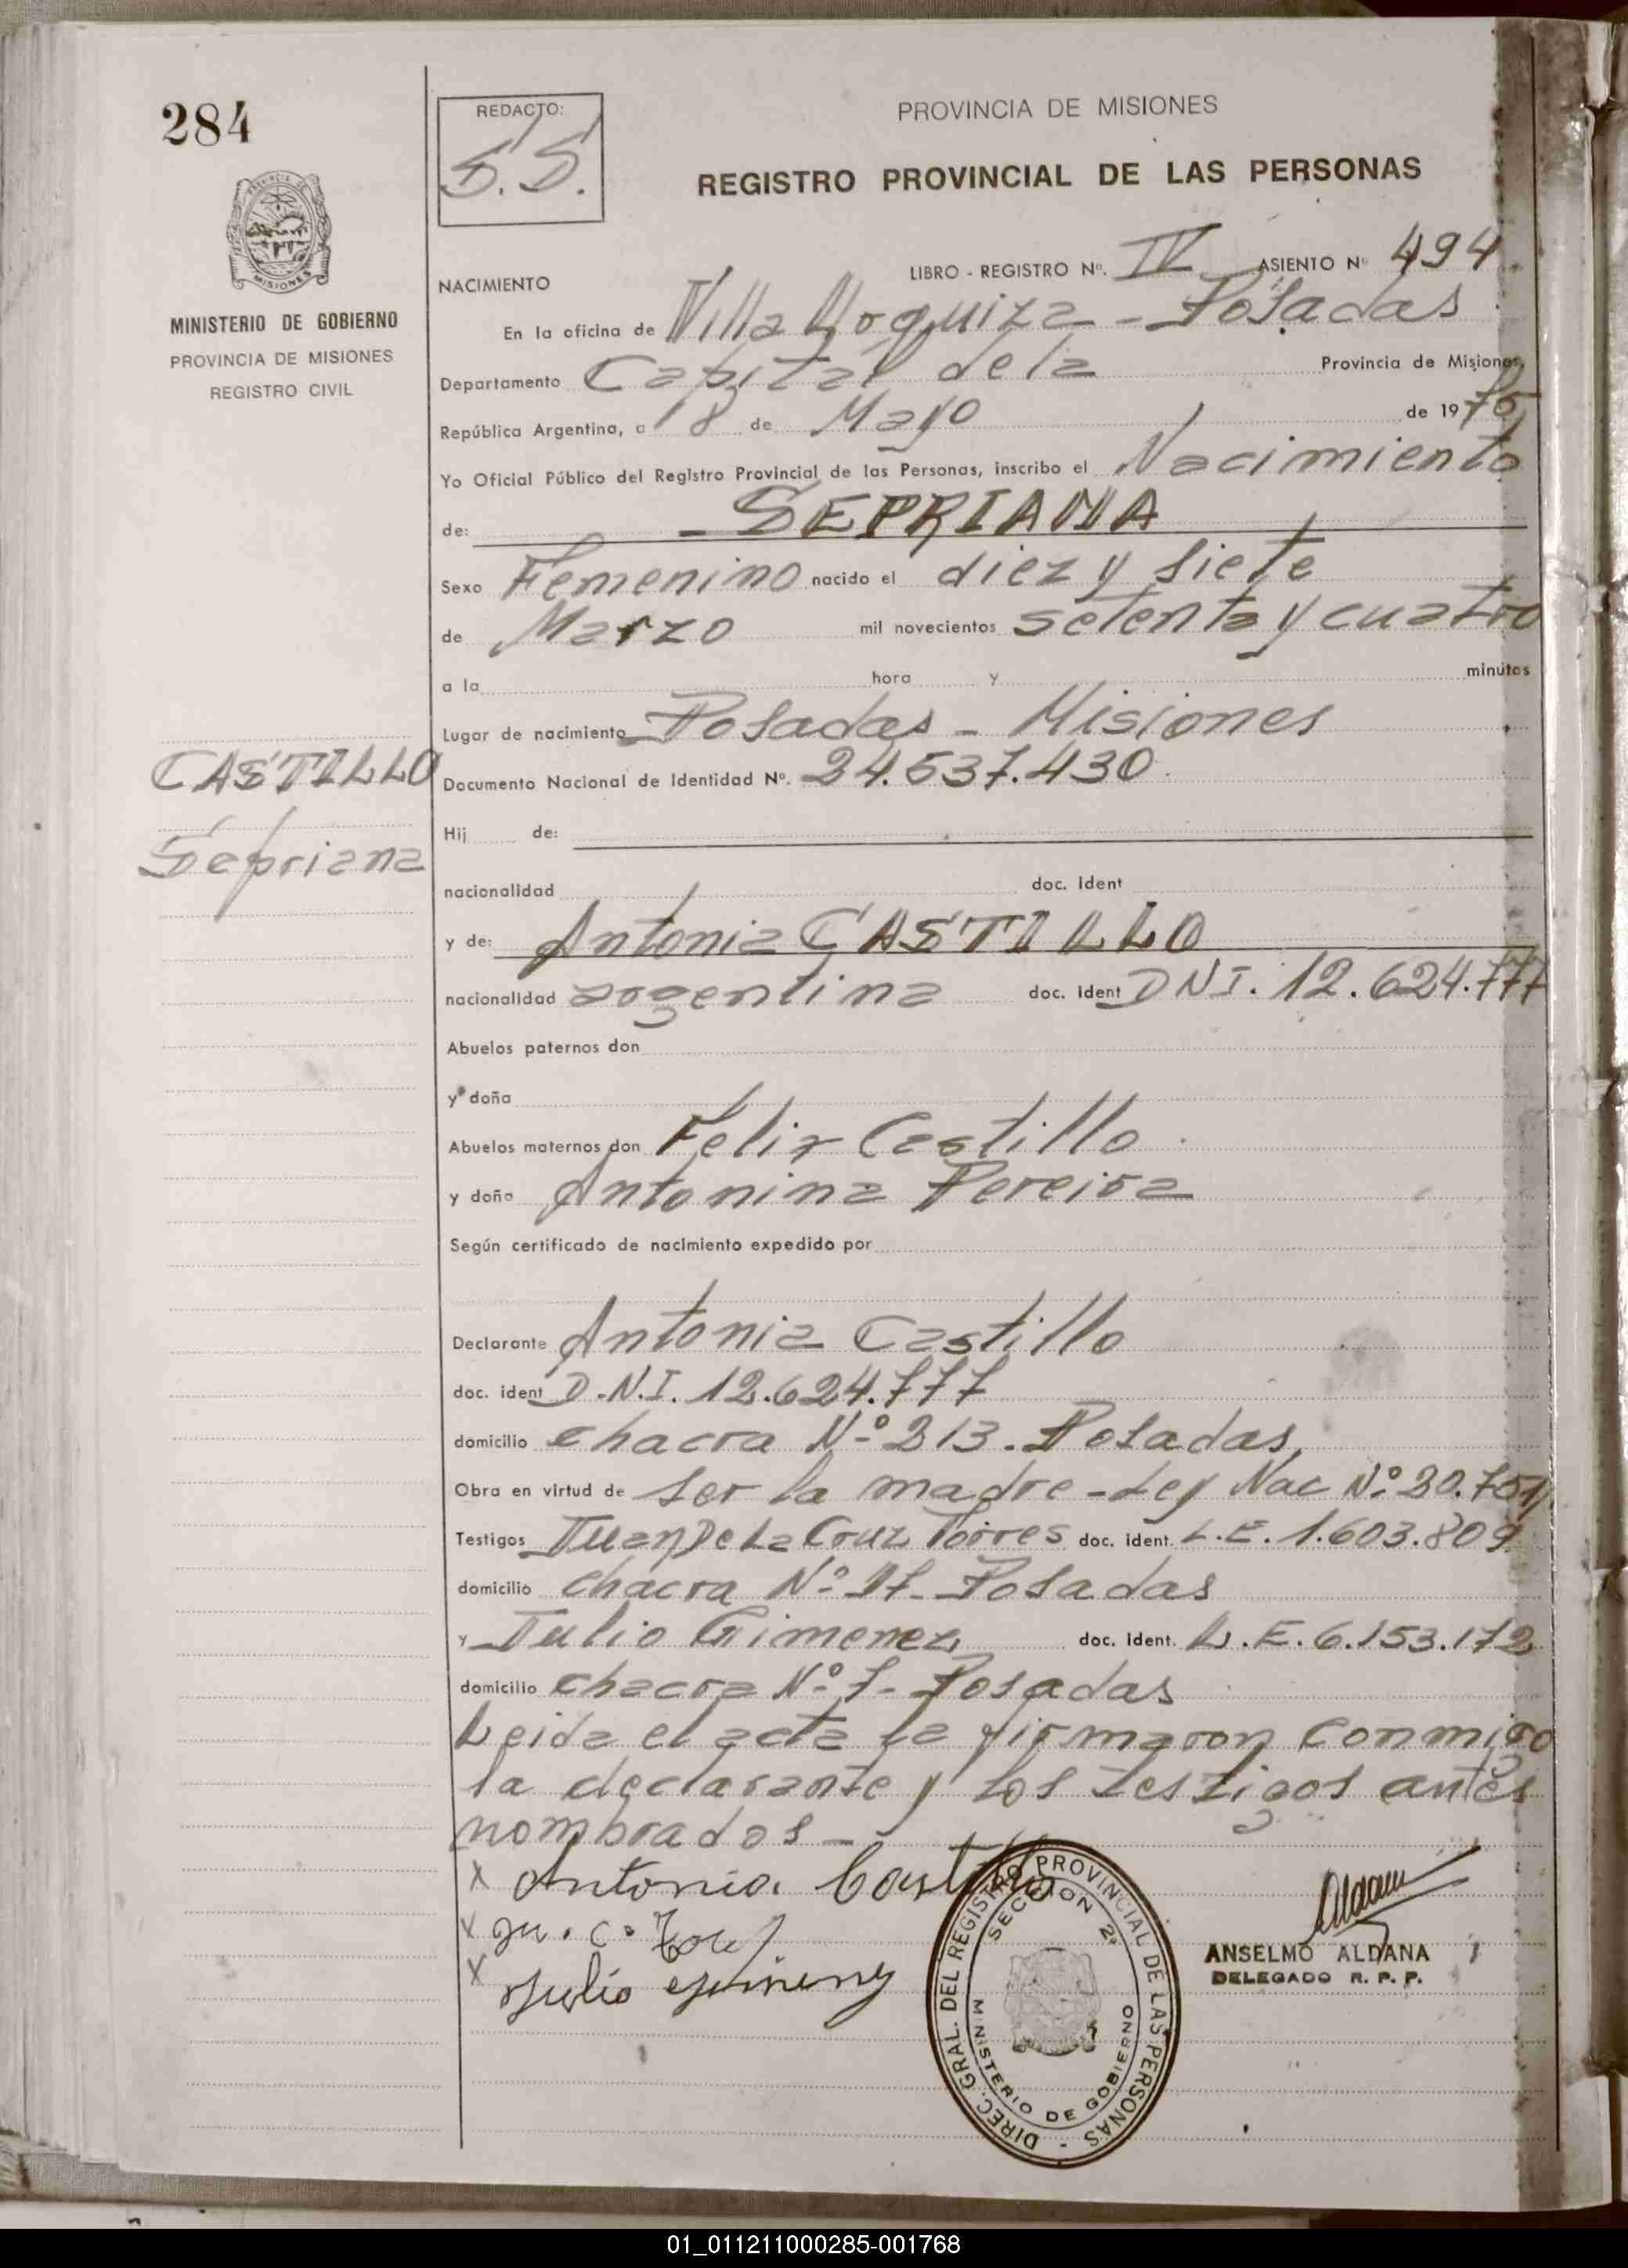 284
REDACTO:
S.S.
PROVINCIA DE MISIONES
REGISTRO PROVINCIAL DE LAS PERSONAS
MINISTERIO DE GOBIERNO
PROVINCIA DE MISIONES
REGISTRO CIVIL
LIBRO - REGISTRO Nº. IV ASIENTO Nº 494
NACIMIENTO
En la oficina de Villa Urquiza - Posadas
Departamento Capital de la Provincia de Misiones,
República Argentina, a 18 de Mayo de 19 76
Yo Oficial Público del Registro Provincial de las Personas, inscribo el Nacimiento
de: - SEPRIANA
Sexo Femenino nacido el diez y siete
de Marzo mil novecientos setenta y cuatro
a la hora y minutos
Lugar de nacimiento Posadas - Misiones
CASTILLO
Sepriana
Documento Nacional de Identidad Nº. 24.537.430
Hij de:
nacionalidad doc. ident
y de: Antonia CASTILLO
nacionalidad argentina doc. ident DNI. 12.624.777
Abuelos paternos don
y doña
Abuelos maternos don Felix Castillo
y doña Antonina Pereira
Según certificado de nacimiento expedido por
Declarante Antonia Castillo
doc. ident D.N.I. 12.624.777
domicilio chacra Nº 213. Posadas,
Obra en virtud de ser la madre - Ley Nac Nº 20.751
Testigos Juan De La Cruz Torres doc. ident. L.E. 1.603.809
domicilio chacra Nº 17- Posadas
y Julio Gimenez doc. ident. L.E. 6.153.172
domicilio chacra Nº 7- Posadas
Leida el acta la firmaron conmigo
la declarante y los testigos antes
nombrados -
x Antonia Castillo
x Ju. C.
x Julio
DIREC. GRAL. DEL REGISTRO PROVINCIAL DE LAS PERSONAS -
SECCION 2ª
MINISTERIO DE GOBIERNO
ANSELMO ALDANA
DELEGADO R. P. P.
01_011211000285-001768